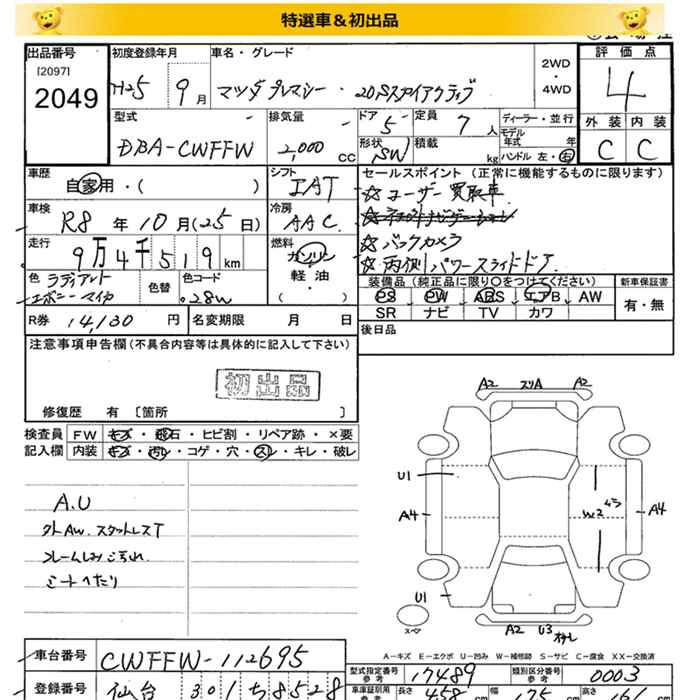 特選車&初出品
出品番号 初度登録年月 車名・グレード 評価点
[2097]
2049
H25 9月 マツダプレマシー・20Sスカイアクティブ
2WD・4WD
4
型式 排気量 ドア 定員 ディーラー・並行 外装 内装
DBA-CWFFW 2,000 CC 5 7人
モデル年式 年
形状 積載
SW kg ハンドル 左・右
C C
車歴 シフト セールスポイント(正常に機能するものに限ります)
自家用・( ) IAT
☆ユーザー買取車
車検 冷房
R8年10月(25日) AAC
☆バックカメラ
走行 燃料
9万4千519km ガソリン
軽・油
( )
☆両側パワースライドドア
色 色替 色コード
ラディアントエボニーマイカ 28W
装備品(純正品に限り○をつけてください) 新車保証書
PS PW ABS エアB AW 有・無
SR ナビ TV カワ
R券 14,130円 名変期限 月 日
後日品
注意事項申告欄(不具合内容等は具体的に記入して下さい)
初出品
修復歴 有 〔箇所 〕
検査員 FW キズ・飛石・ヒビ割・リペア跡・×要
記入欄 内装 キズ・汚レ・コゲ・穴・スレ・キレ・破レ
A.U
外AW.スタットレスT
フレームしみこ汚れ
シートへたり
A2 スリA A2
U1
A4 W2 ムラ A4
U1
スペア
A2 U3
A-キズ E-エクボ U-凹み W-補修跡 S-サビ C-腐食 XX-交換済
車台番号 CWFFW-112695
型式指定番号 参考 17489 類別区分番号 参考 0003
登録番号 仙台 301 ち 8528
車庫証明用 参考 長さ 458 cm 幅 175 cm 高さ